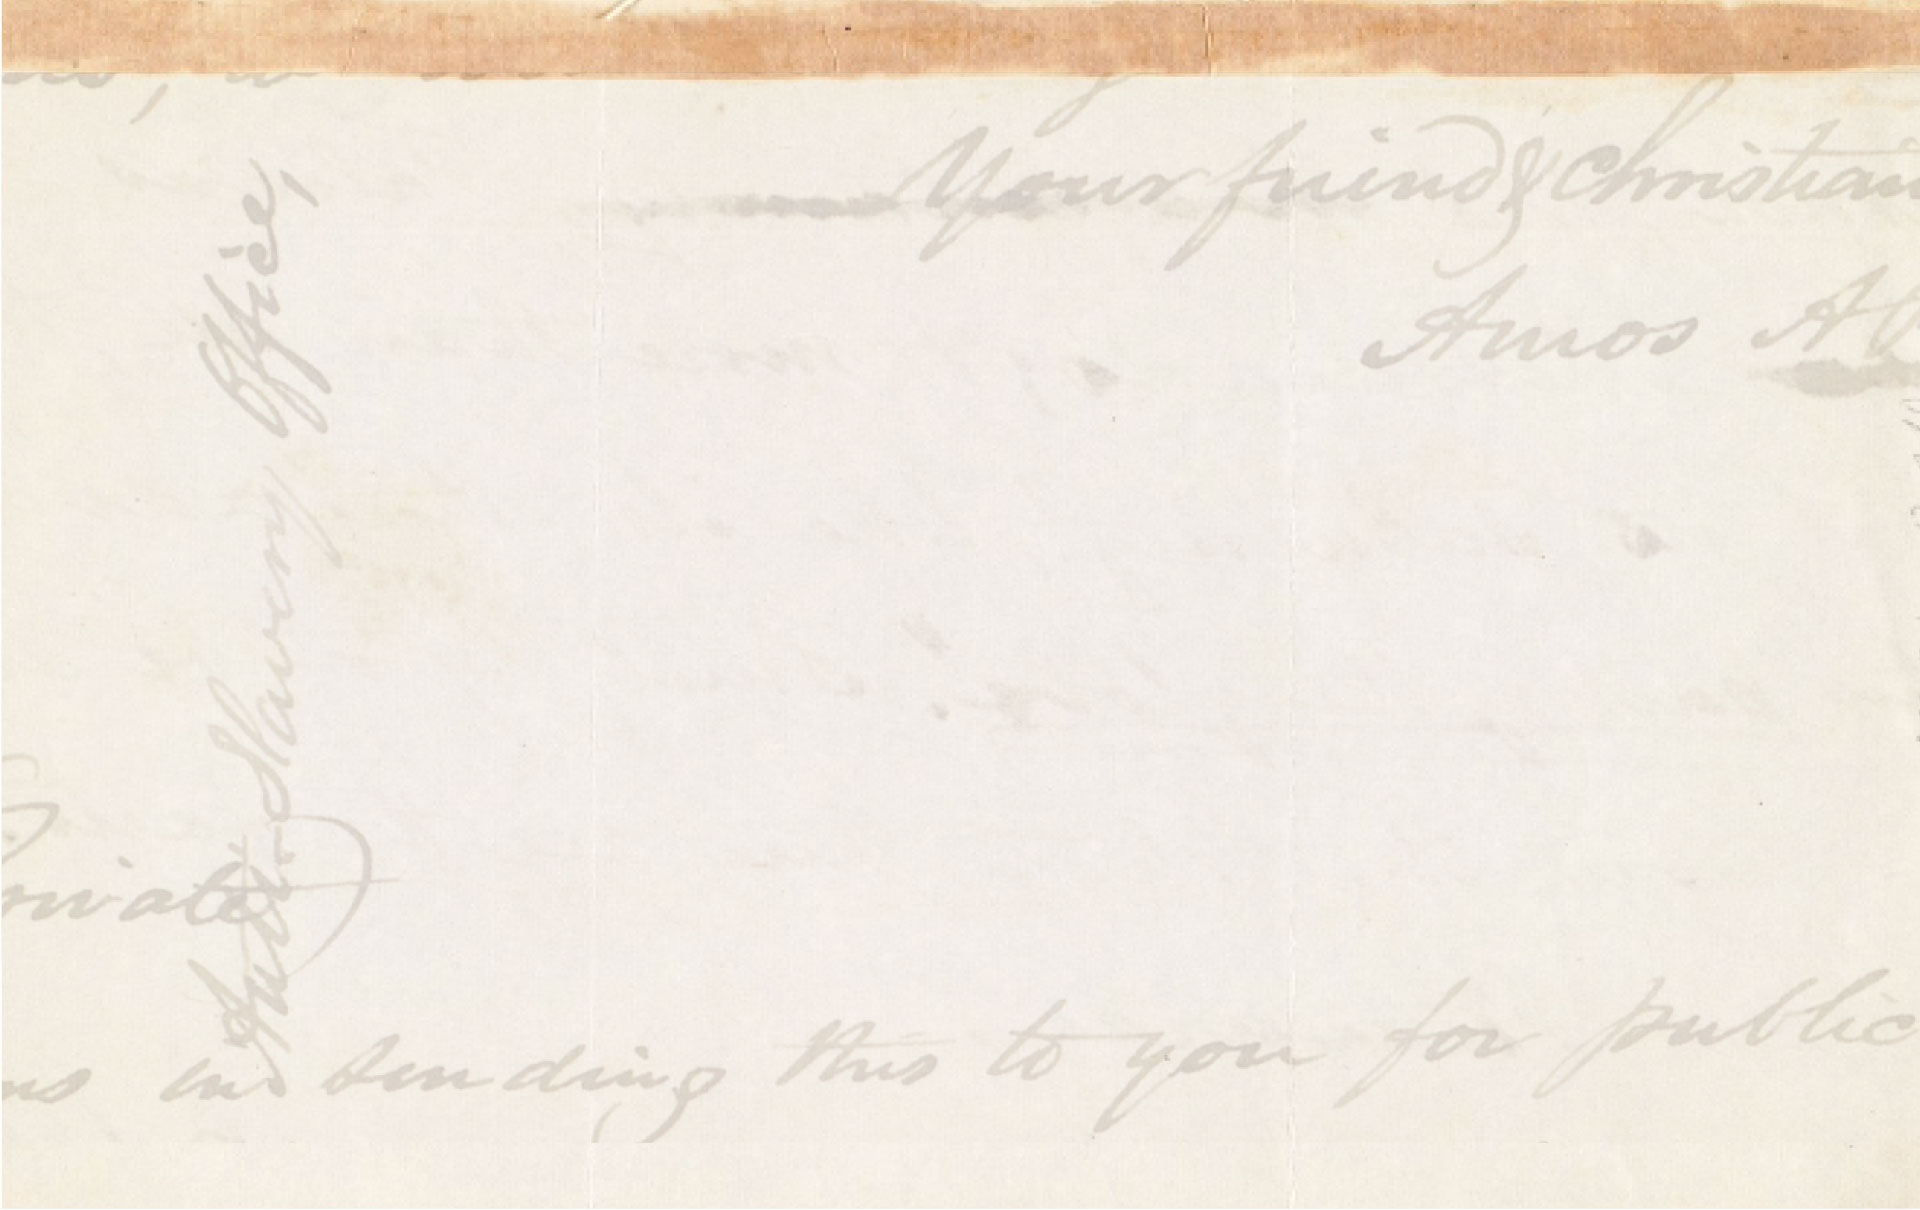 Your friend & Christian
Amos A
Anti-Slavery Office,
private
in sending this to you for public